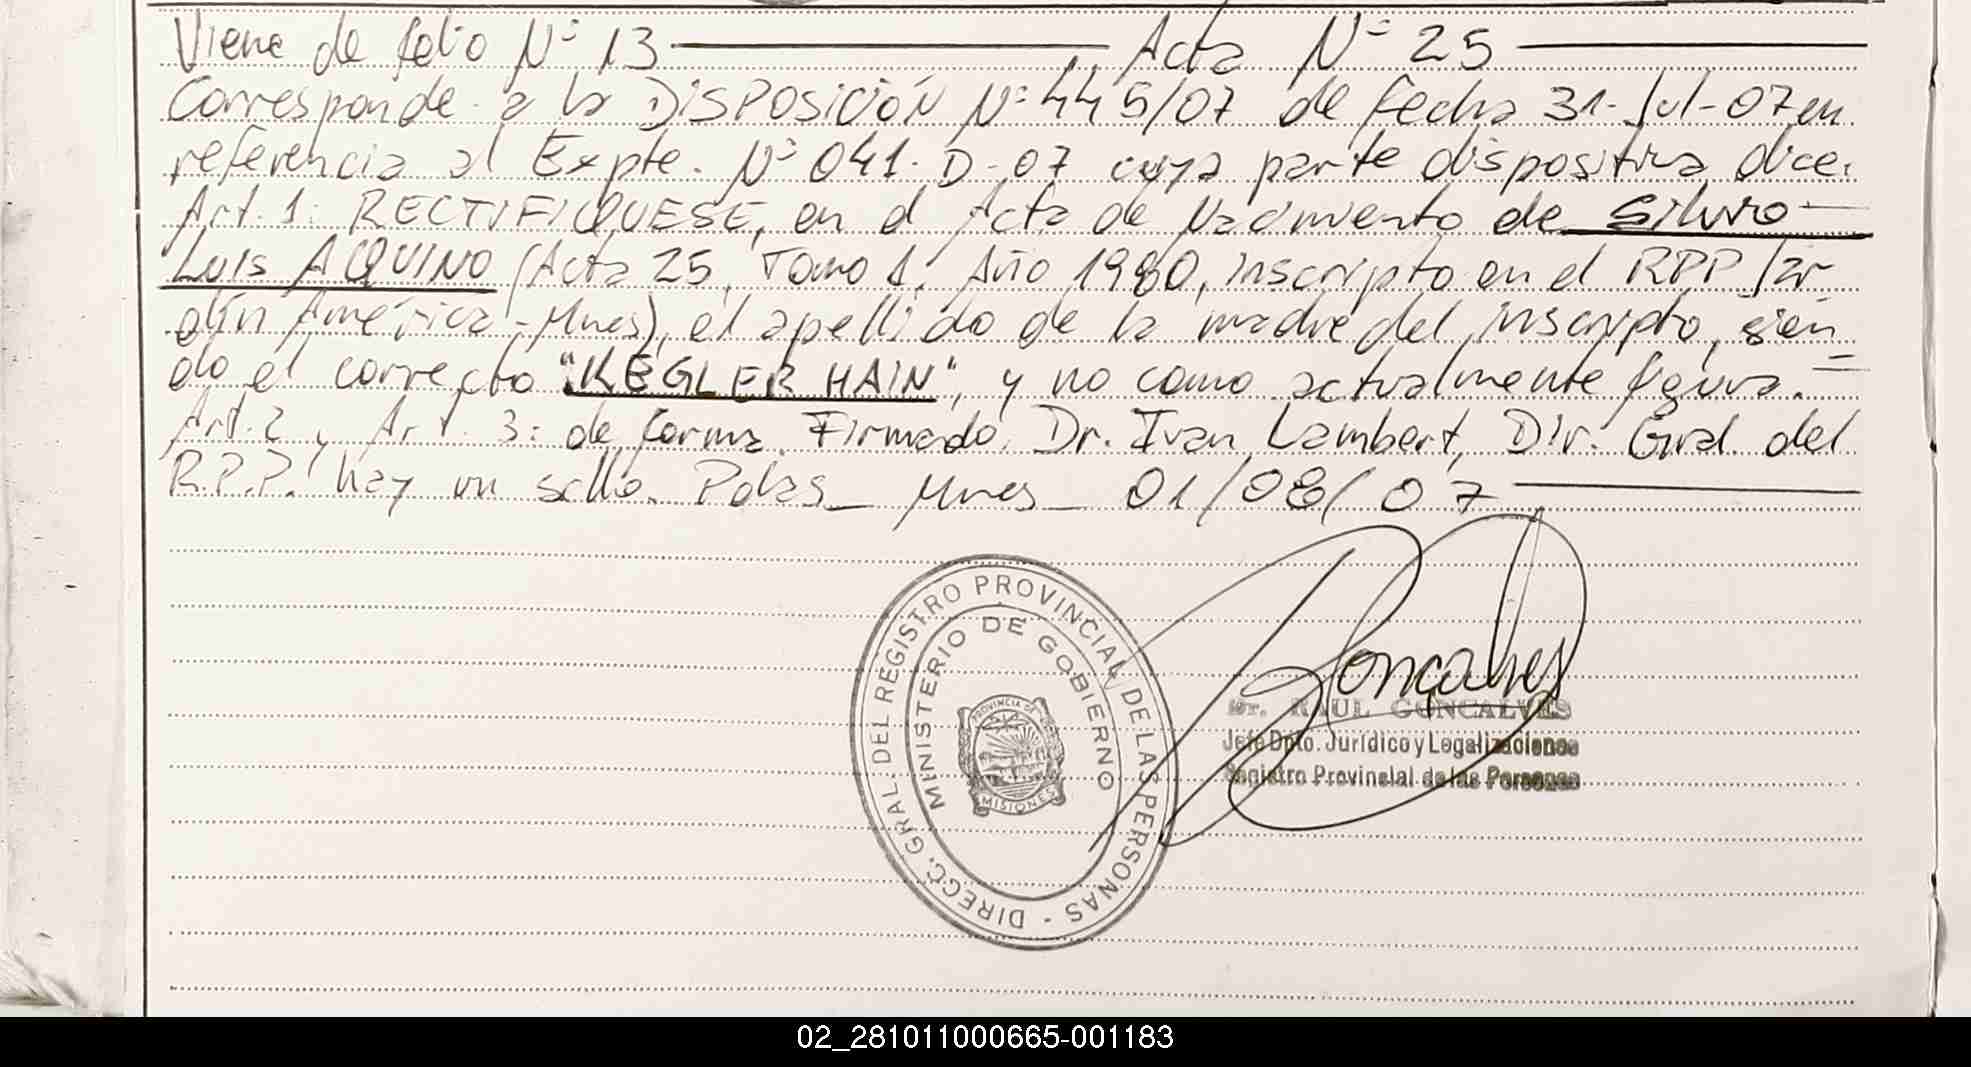 Viene de folio Nº 13 — Acta Nº 25 —
Corresponde a la DISPOSICIÓN Nº 445/07 de fecha 31-Jul-07 en
referencia al Expte. Nº 041-D-07 cuya parte dispositiva dice:
Art. 1: RECTIFIQUESE, en el Acta de Nacimiento de Silvio
Luis AQUINO (Acta 25, Tomo 1, Año 1980, inscripto en el RPP Jar
dín América-Mnes), el apellido de la madre del inscripto, sien
do el correcto "KEGLER HAIN", y no como actualmente figura.=
Art. 2 y Art. 3: de forma. Firmado. Dr. Ivan Lambert, Dir. Gral. del
R.P.P. hay un sello. Pdas_ Mnes_ 01/08/07 —
DIRECC. GRAL. DEL REGISTRO PROVINCIAL DE LAS PERSONAS -
MINISTERIO DE GOBIERNO
PROVINCIA DE
MISIONES
Gonçalves
Dr. RAUL GONCALVES
Jefe Dpto. Jurídico y Legalizaciones
Registro Provincial de las Personas
02_281011000665-001183